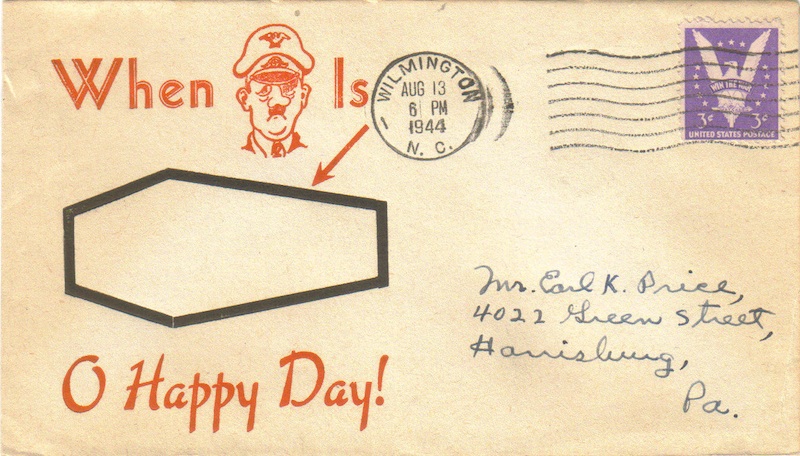 When Is
WILMINGTON
AUG 13
6 PM
1944
N. C.
WIN THE WAR
3¢ 3¢
UNITED STATES POSTAGE
Mr. Earl K. Price,
4022 Green Street,
Harrisburg,
Pa.
O Happy Day!